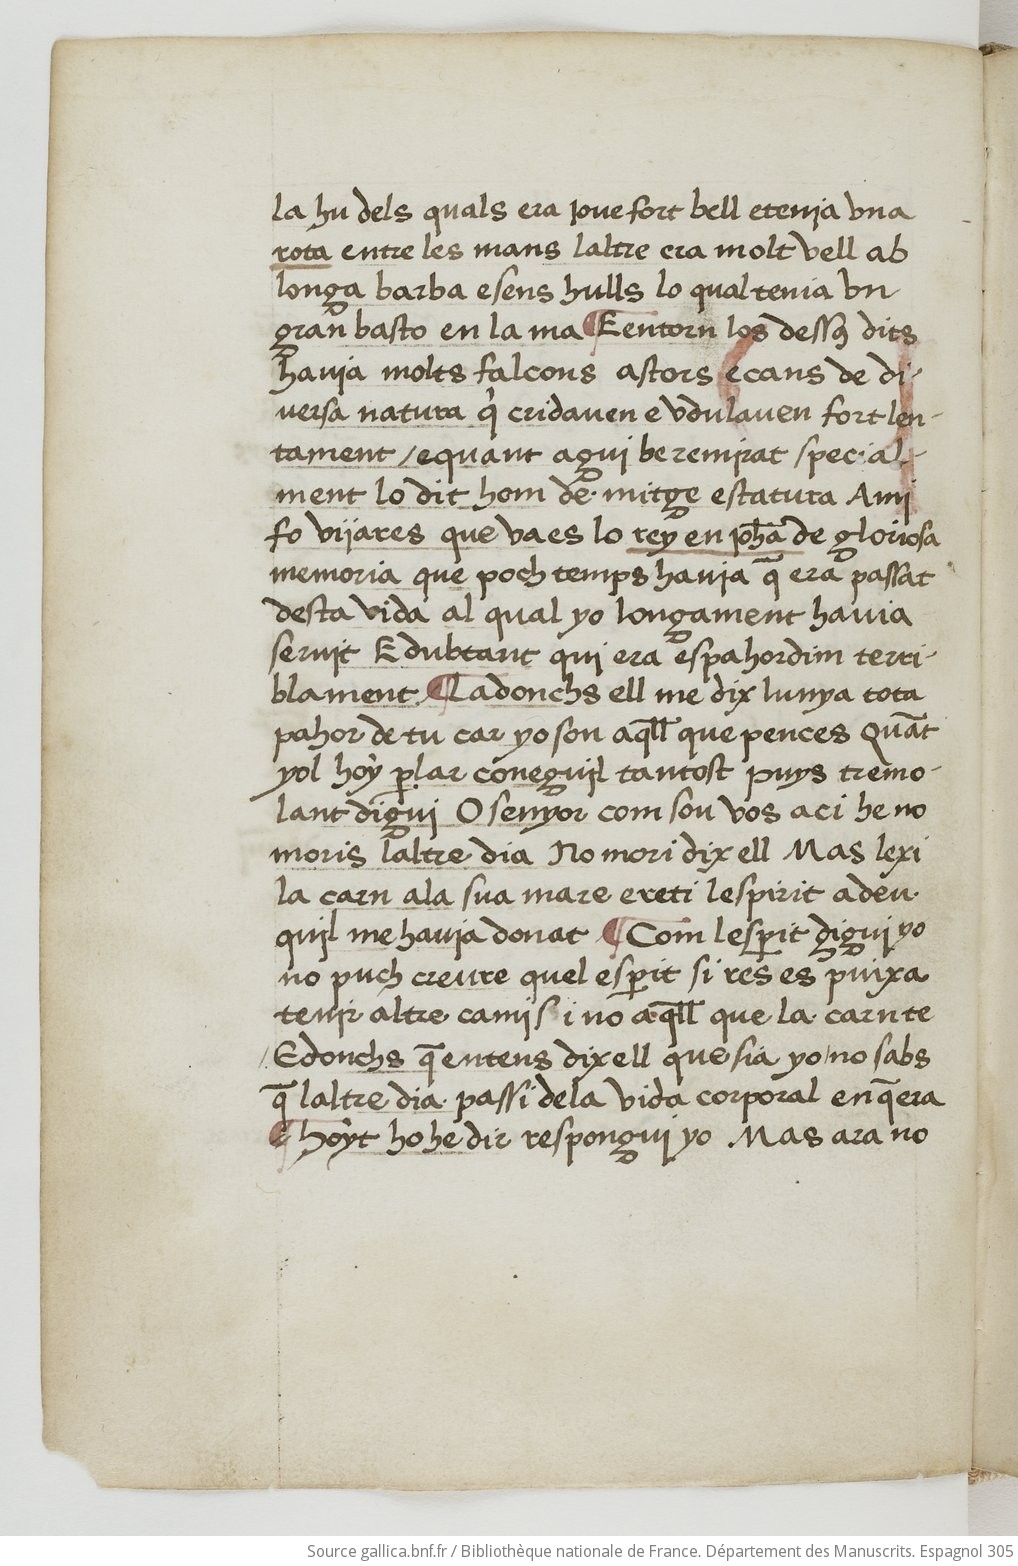 la hu dels quals era joue fort bell e tenia vna
rota entre les mans laltre era molt vell ab
longa barba e sens hulls lo qual tenia vn
gran basto en la ma ¶ E entorn los dessꝰ dits
hauia molts falcons astors e cans de di-
uersa natura q̇ cridauen e vdulauen fort len-
tament / e quant agui be remirat special-
ment lo dit hom de mitge estatura Ami
fo vijares que va es lo rey en joh̄a de gloriosa
memoria que poch temps hauia q̄ era passat
desta vida al qual yo longament hauia
seruit E dubtant qui era espahordim terri-
blament ¶ Ladonchs ell me dix lunya tota
pahor de tu car yo son aq̄ll que pences Quāt
yol hoy ꝑlar coneguil tantost puys tremo-
lant digui O senyor com sou vos aci he no
moris laltre dia No mori dix ell Mas lexi
la carn a la sua mare e reti lespirit a deu
quil me hauia donat ¶ Com lesꝑit digui yo
no puch creure quel esꝑit si res es puixa
tenir altre cami si no aq̄ll que la carn te
/ E donchs q̄ entens dix ell que sia yo / no sabs
q̄ laltre dia passi de la vida corporal en q̄ era
¶ hoyt ho he dir respongui yo Mas ara no
Source gallica.bnf.fr / Bibliothèque nationale de France. Département des Manuscrits. Espagnol 305